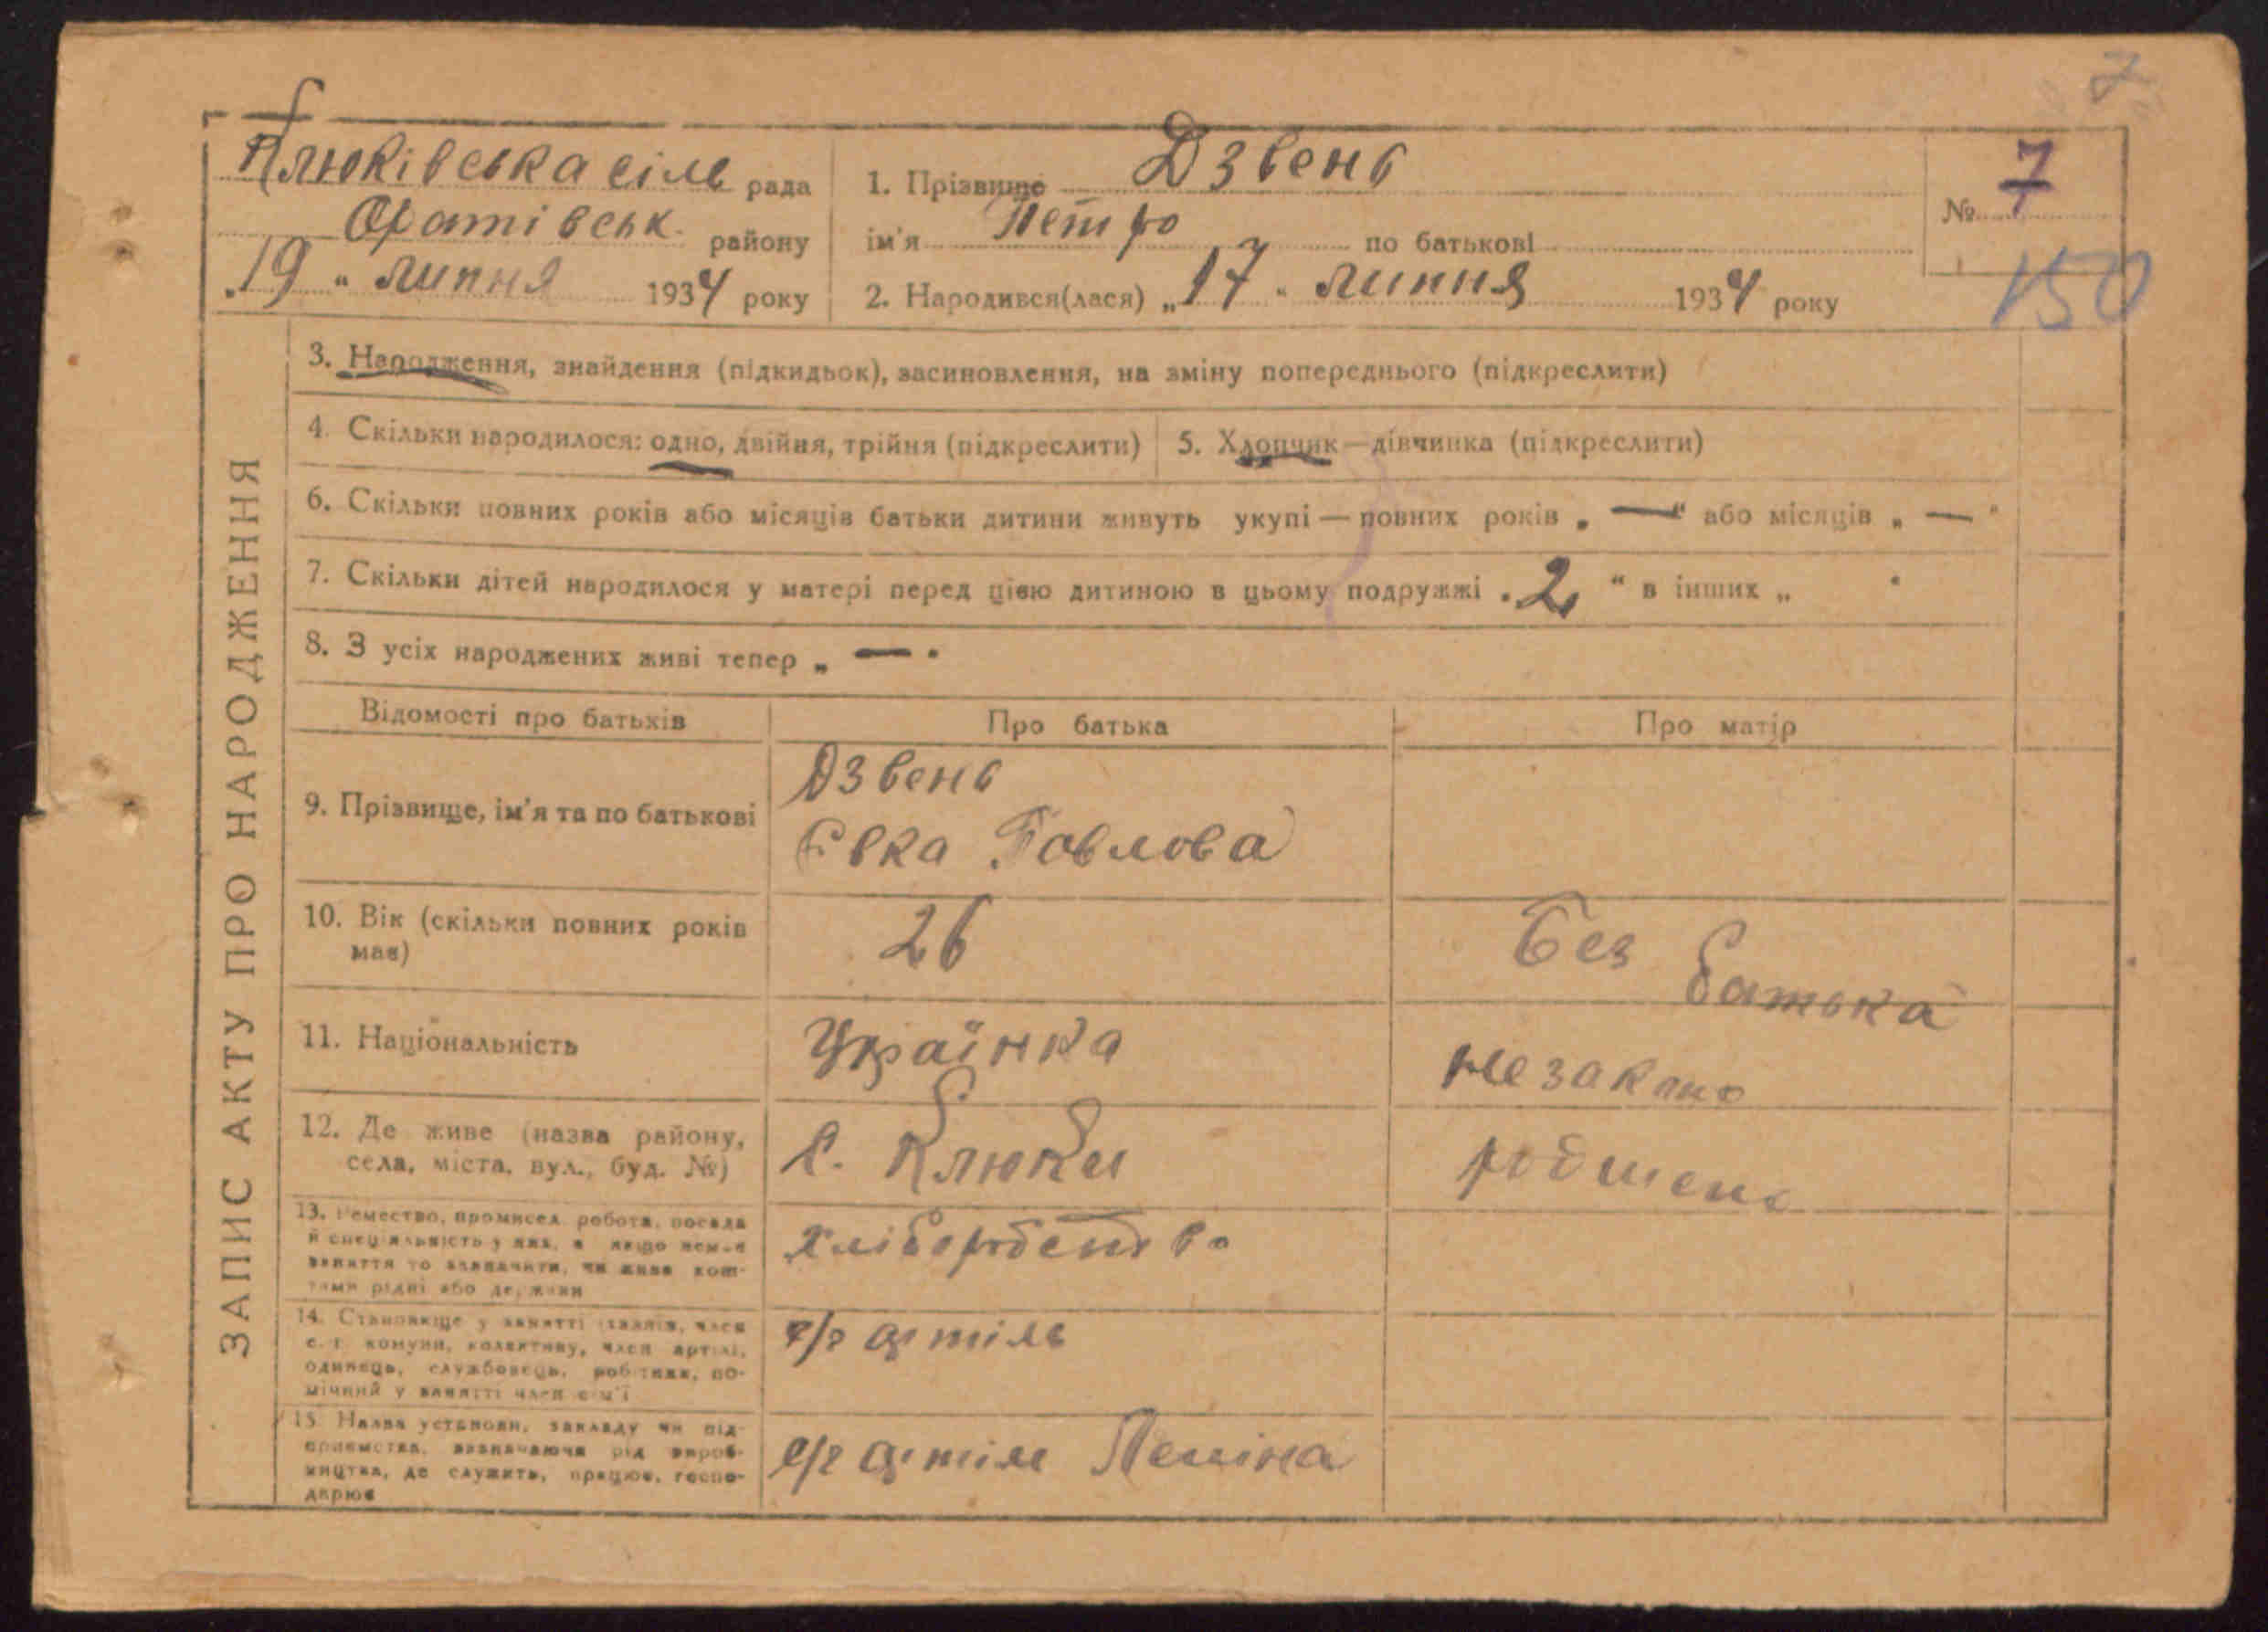 7
Клюківська сіль рада
Оратівськ. району
„19“ липня 1934 року
1. Прізвище Дзвень
ім'я Петро по батькові
2. Народився(лася) „17“ липня 1934 року
№ 7
150
ЗАПИС АКТУ ПРО НАРОДЖЕННЯ
3. Народження, знайдення (підкидьок), засиновлення, на зміну попереднього (підкреслити)
4. Скільки народилося: одно, двійня, трійня (підкреслити)
5. Хлопчик—дівчинка (підкреслити)
6. Скільки повних років або місяців батьки дитини живуть укупі — повних років „—“ або місяців „—“
7. Скільки дітей народилося у матері перед цією дитиною в цьому подружжі „2“ в інших „ “
8. З усіх народжених живі тепер „—“
Відомості про батьків
Про батька
Про матір
9. Прізвище, ім'я та по батькові
Дзвень
Євка Павлова
10. Вік (скільки повних років
має)
26
Без
батька
11. Національність
Українка
незакно
12. Де живе (назва району,
села, міста, вул., буд. №)
с. Клюки
рождено
13. Ремество, промисел, робота, посада
й спеціяльність у них, а якщо немає
заняття то зазначити, чи живе кош-
тами рідні або держави
хліборобство
14. Становище у занятті (хазяїн, член
с.-г. комуни, колективу, член артілі,
одинець, службовець, робітник, по-
мічний у занятті член сім'ї
с/г артіль
15. Назва установи, закладу чи під-
приємства, зазначаючи рід вироб-
ництва, де служить, працює, госпо-
дарює
с/г артіль Леніна